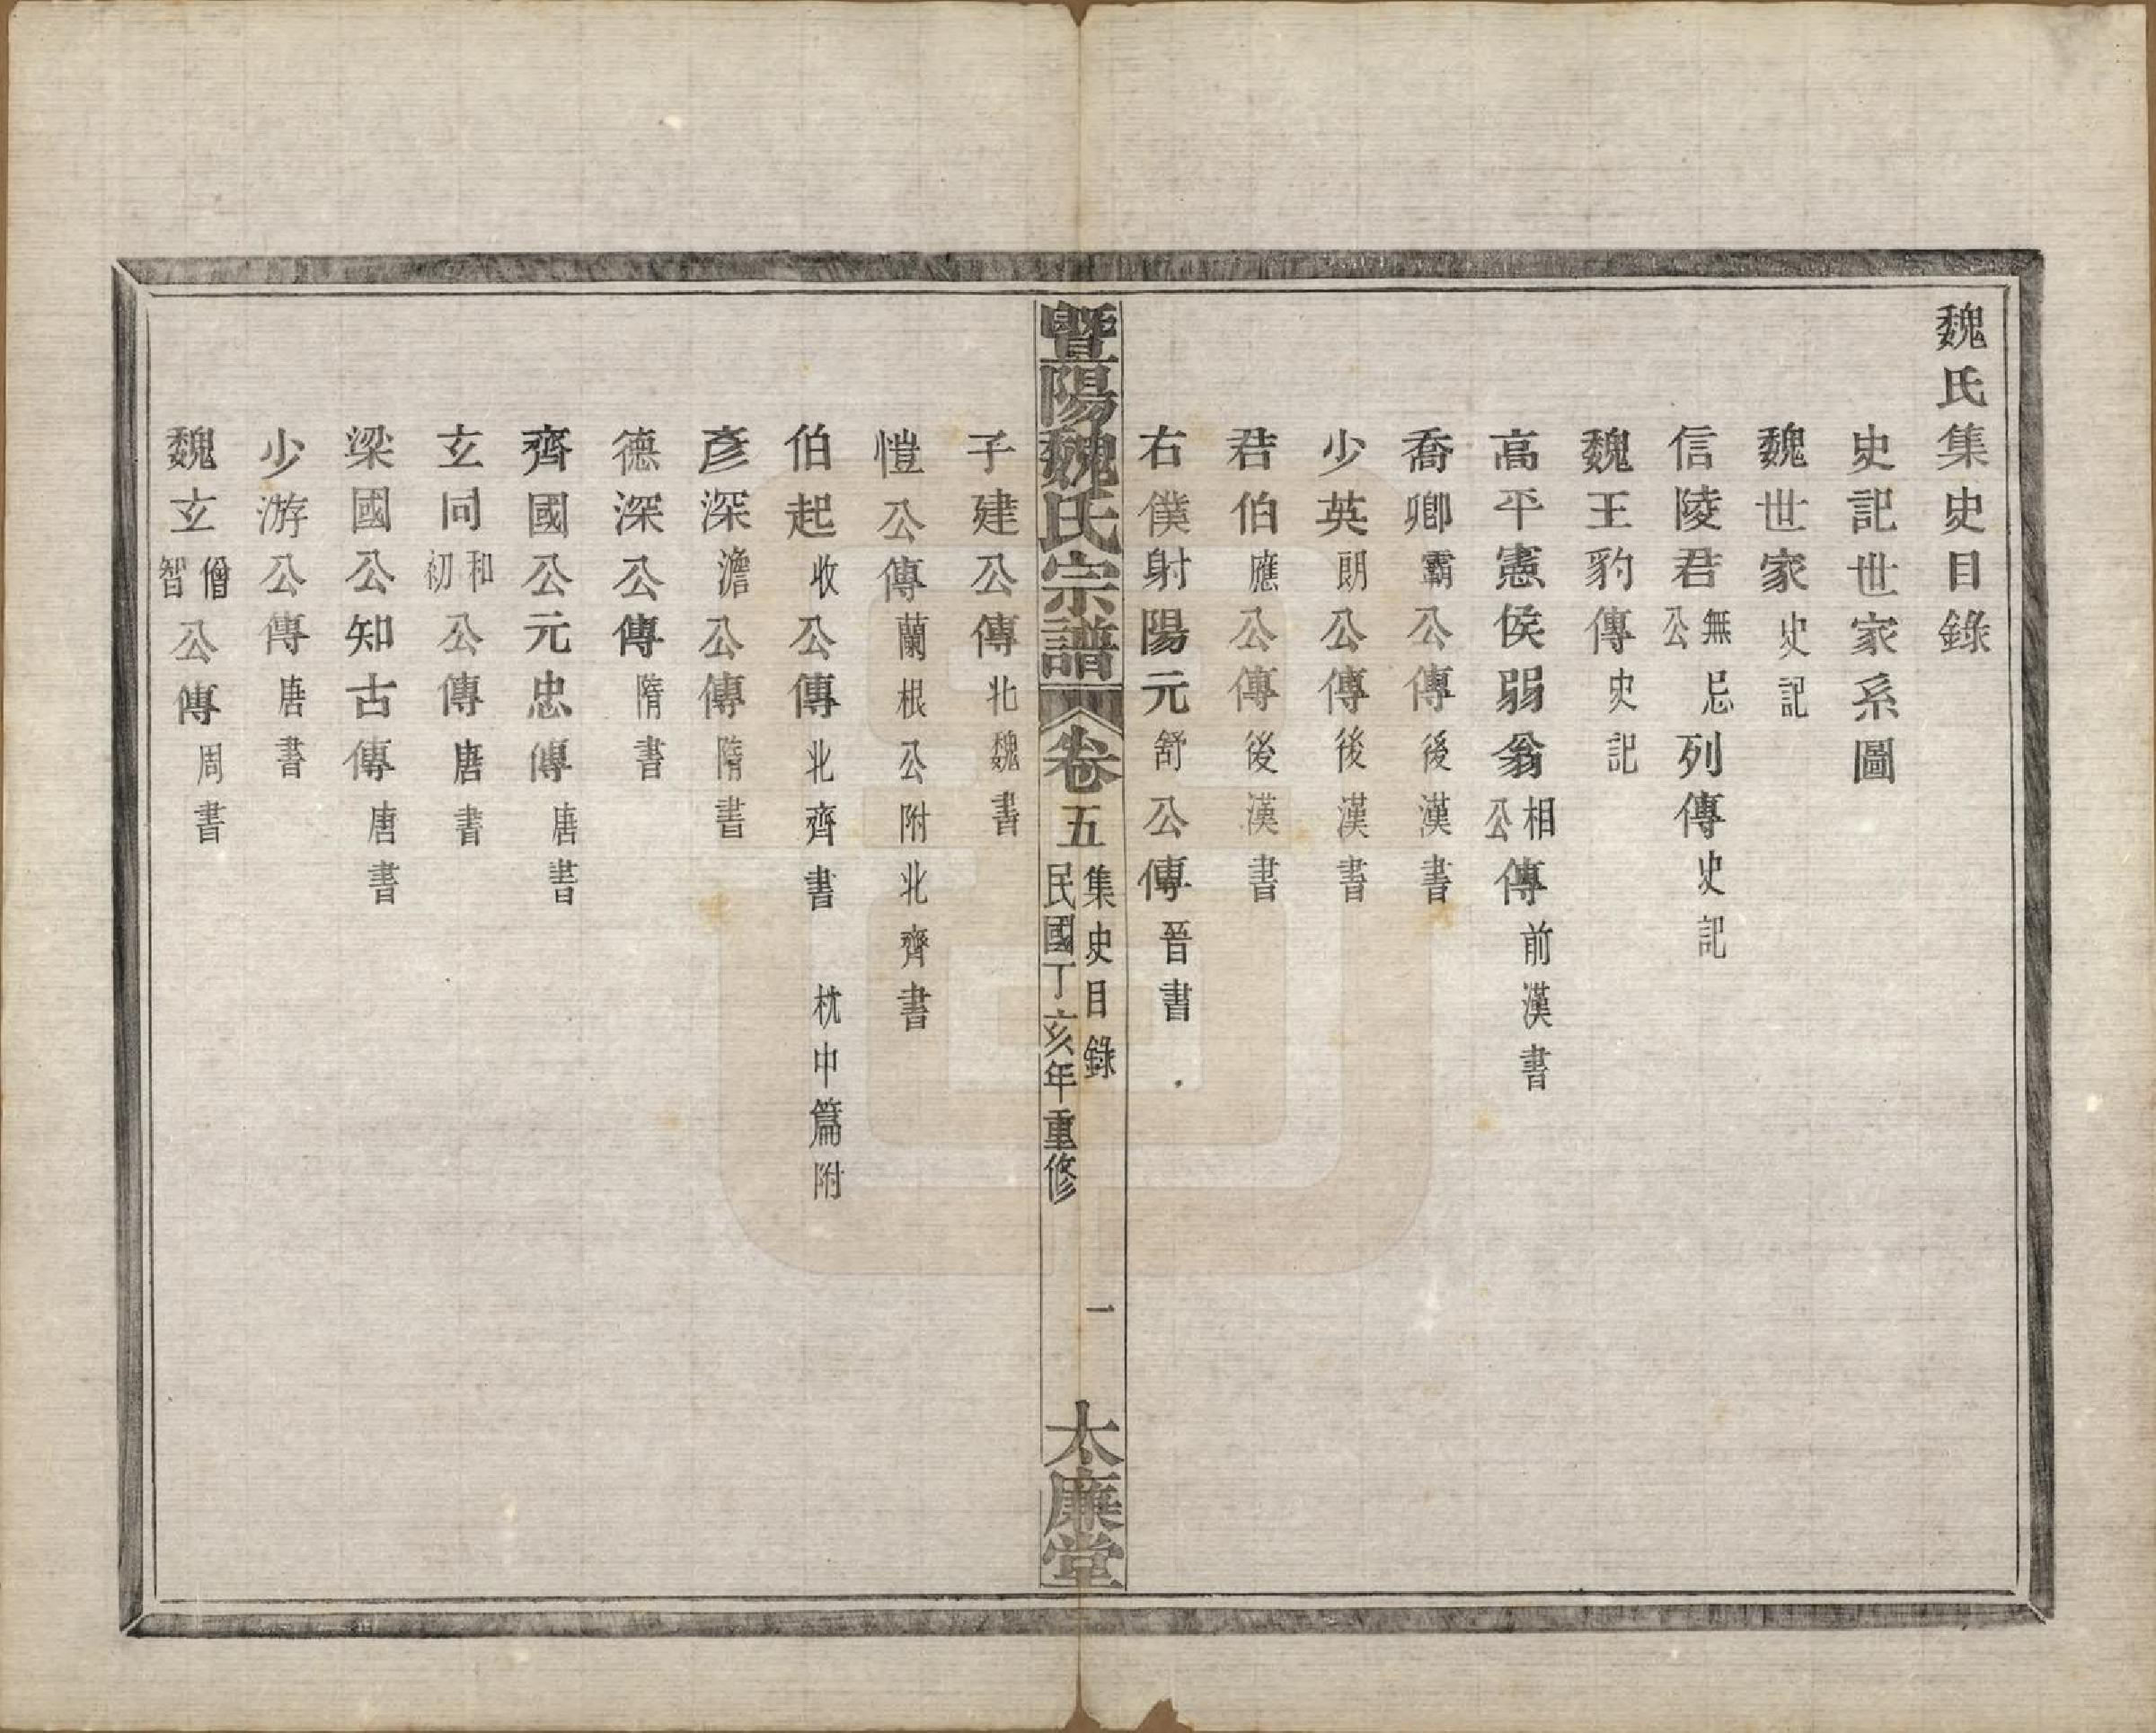 魏氏集史目錄
史記世家系圖
魏世家史記
信陵君無忌公列傳史記
魏王豹傳史記
高平憲侯弱翁相公傳前漢書
喬卿霸公傳後漢書
少英朗公傳後漢書
君伯應公傳後漢書
右僕射陽元舒公傳晉書
暨陽魏氏宗譜
卷五
集史目錄
民國丁亥年重修
一
太廉堂
子建公傳北魏書
愷公傳蘭根公附北齊書
伯起收公傳北齊書 枕中篇附
彥深澹公傳隋書
德深公傳隋書
齊國公元忠傳唐書
玄同和初公傳唐書
梁國公知古傳唐書
少游公傳唐書
魏玄僧智公傳周書